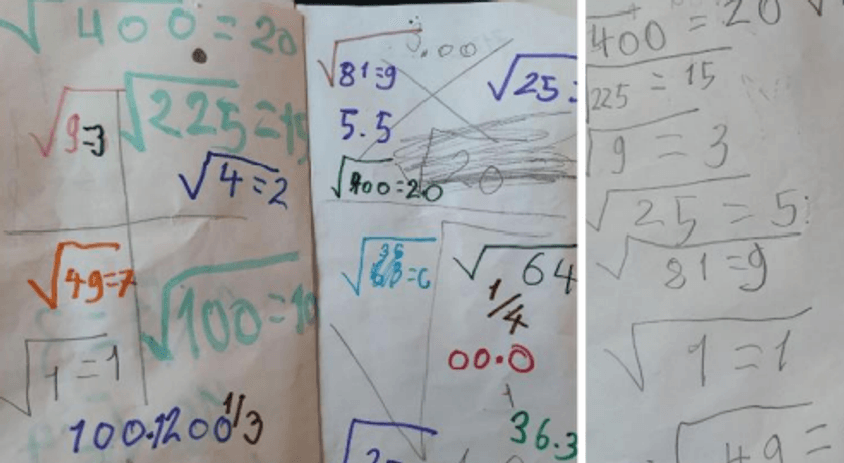 √400 = 20
√9=3
√225=15
√4=2
√49=7
√100=10
√1=1
100.1200 1/3
3.00
√81=9
√25=
5.5
√400=20
20
√36=6
√64
1/4
00.0
36.3
√400 = 20
√225 = 15
√9 = 3
√25 = 5
√81=9
√1=1
√49=